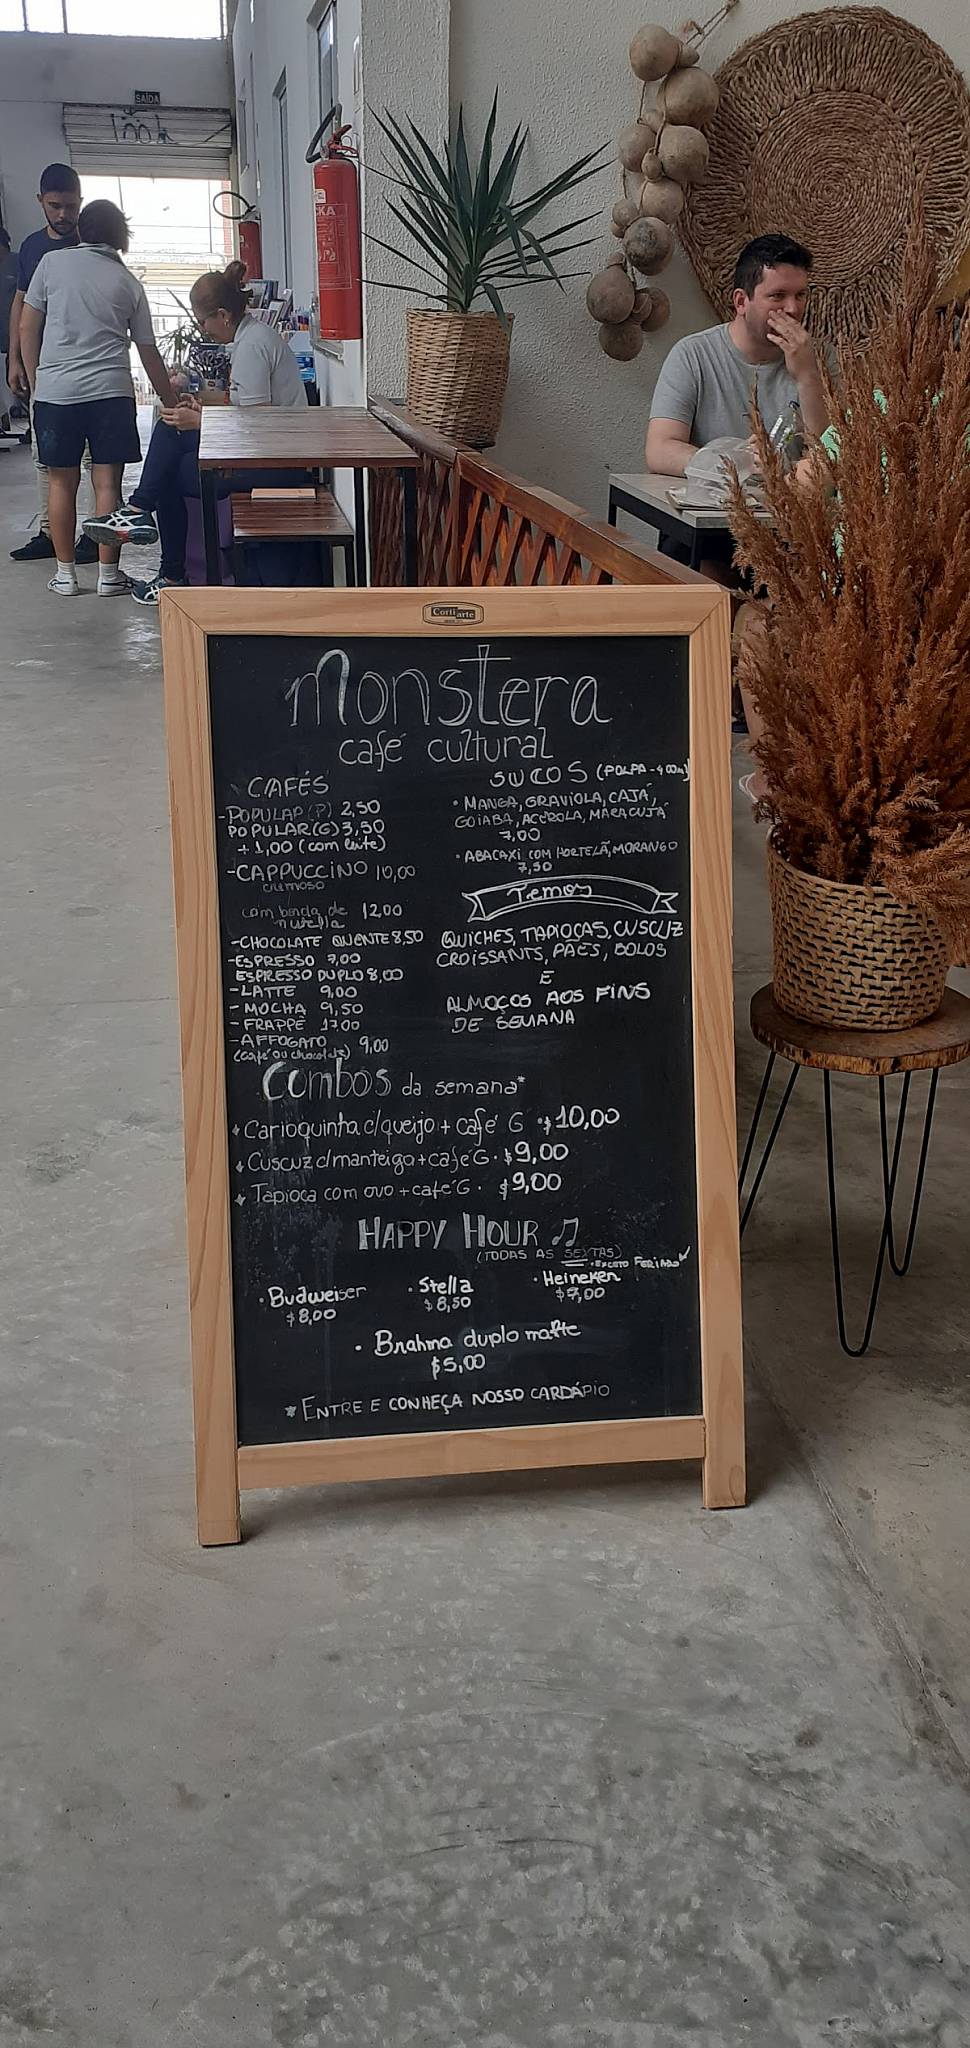 SAÍDA
Corttarte
Monstera
café cultural
CAFÉS
-POPULAR (P) 2,50
POPULAR (G) 3,50
+1,00 (com leite)
-CAPPUCCINO 10,00
cremoso
com borda de 12,00
nutella
-CHOCOLATE QUENTE 8,50
-ESPRESSO 7,00
ESPRESSO DUPLO 8,00
-LATTE 9,00
-MOCHA 9,50
-FRAPPÊ 17,00
-AFFOGATO 9,00
(café ou chocolate)
SUCOS (POLPA - 400ml)
• MANGA, GRAVIOLA, CAJÁ,
GOIABA, ACEROLA, MARACUJÁ
7,00
• ABACAXI COM HORTELÃ, MORANGO
7,50
Temos
QUICHES, TAPIOCAS, CUSCUZ
CROISSANTS, PÃES, BOLOS
E
ALMOÇOS AOS FINS
DE SEMANA
Combos da semana*
Carioquinha c/queijo + café G • $10,00
Cuscuz c/manteiga + café G • $9,00
Tapioca com ovo + café G • $9,00
HAPPY HOUR ♫
(TODAS AS SEXTAS)
• EXCETO FERIADO
• Budweiser
$8,00
• Stella
$8,50
• Heineken
$9,00
• Brahma duplo malte
$5,00
* ENTRE E CONHEÇA NOSSO CARDÁPIO